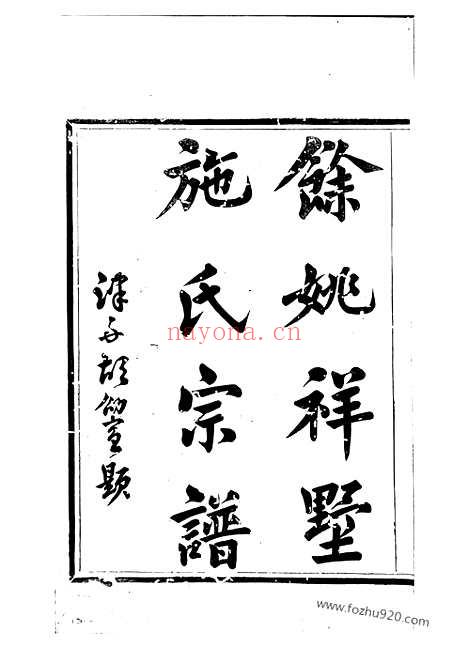 餘姚祥墅
施氏宗譜
nayona.cn
www.fozhu920.com